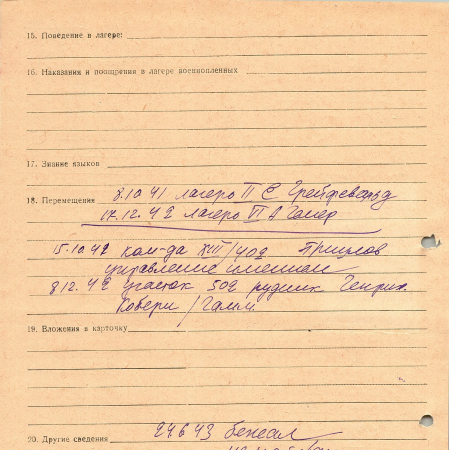 15. Поведение в лагере:
16. Наказания и поощрения в лагере военнопленных
17. Знание языков
18. Перемещения 8.10 41 лагеро II C Грейфевальд
17.12.42 лагеро VI A Гамер
15.10 42 ком-да XIII/402
управление имением
8 12. 42 участок 502 рудник Генрих
Роберт/Гамм.
19. Вложения в карточку
20. Другие сведения 24 6 43 бежал